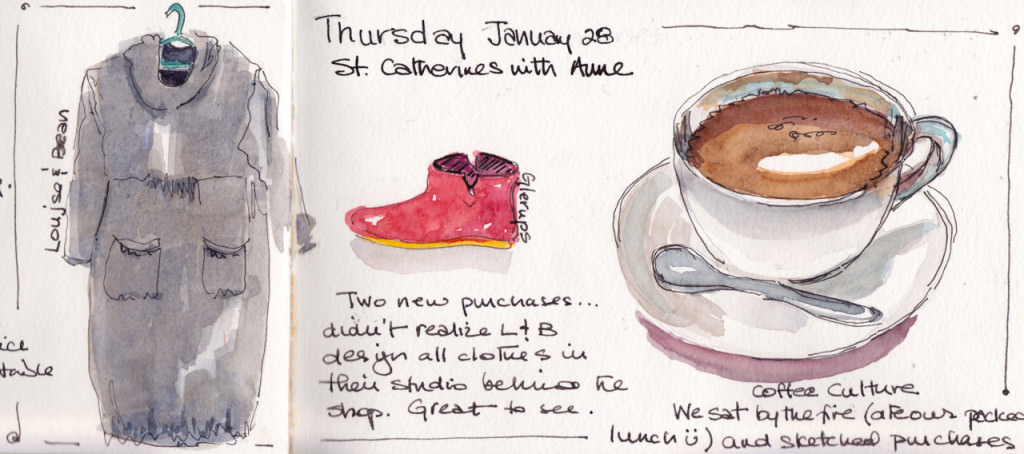 Thursday January 28
St. Catherines with Anne
Loujse & Bean
Glerups
Two new purchases...
didn't realize L & B
design all clothes in
their studio behind the
shop. Great to see.
Coffee Culture
We sat by the fire (ate our packed
lunch ü) and sketched purchases